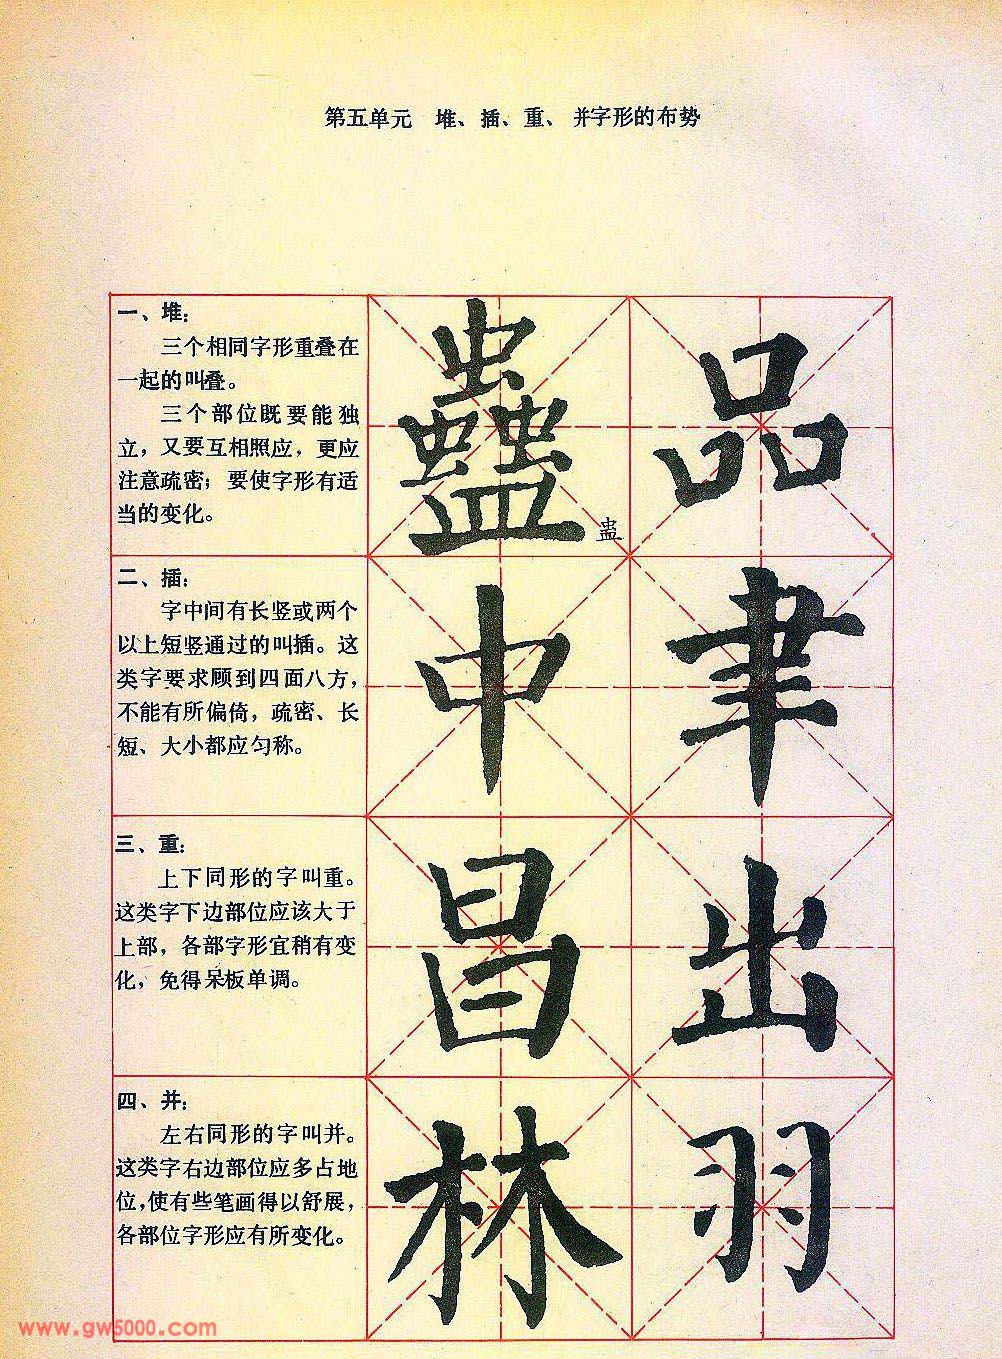 第五单元 堆、插、重、并字形的布势
一、堆：
三个相同字形重叠在
一起的叫叠。
三个部位既要能独
立，又要互相照应，更应
注意疏密；要使字形有适
当的变化。
蠱 品
蛊
二、插：
字中间有长竖或两个
以上短竖通过的叫插。这
类字要求顾到四面八方，
不能有所偏倚，疏密、长
短、大小都应匀称。
中 聿
三、重：
上下同形的字叫重。
这类字下边部位应该大于
上部，各部字形宜稍有变
化，免得呆板单调。
昌 出
四、并：
左右同形的字叫并。
这类字右边部位应多占地
位，使有些笔画得以舒展，
各部位字形应有所变化。
林 羽
www.gw5000.com